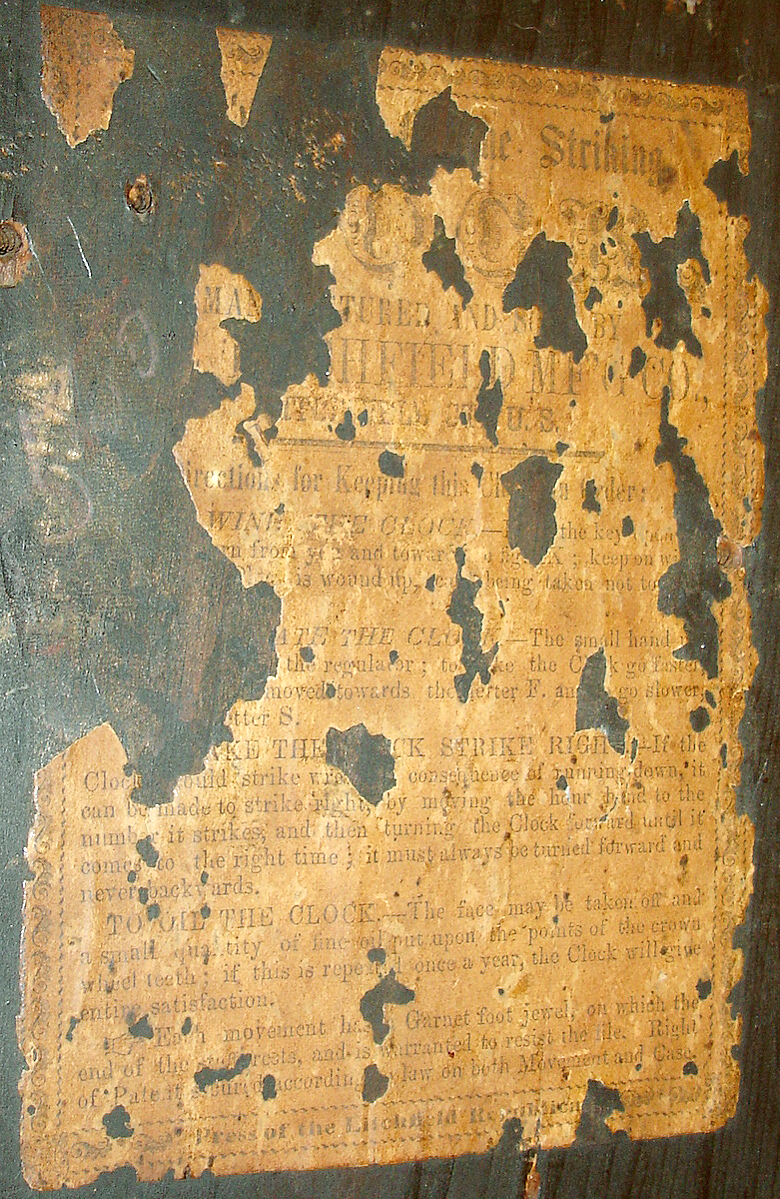 Striking
MAN TURED, AND BY
HFIELD M'F'G CO.,
U. S.
irections for Keeping this Cl rder:
WIND THE CLOCK.— the key
from and towar fig X; keep on
is wound up, being taken not to
ATE THE CLO .—The small hand
the regulator; to ke the Clock go faster
moved towards the letter F. an go slower
tter S.
AKE THE CK STRIKE RIGH .—If the
Cloc ould strike wr consequence of running down, it
can be made to strike right, by moving the hour hand to the
number it strikes, and then turning the Clock forward until it
comes to the right time; it must always be turned forward and
never backwards.
TO OIL THE CLOCK.—The face may be taken off and
a small quantity of fine oil put upon the points of the crown
wheel teeth; if this is repeated once a year, the Clock will give
entire satisfaction.
Each movement has Garnet foot jewel, on which the
end of the staff rests, and is warranted to resist the file. Right
of Patent secured according law on both Movement and Case.
Press of the Litchfield Republican